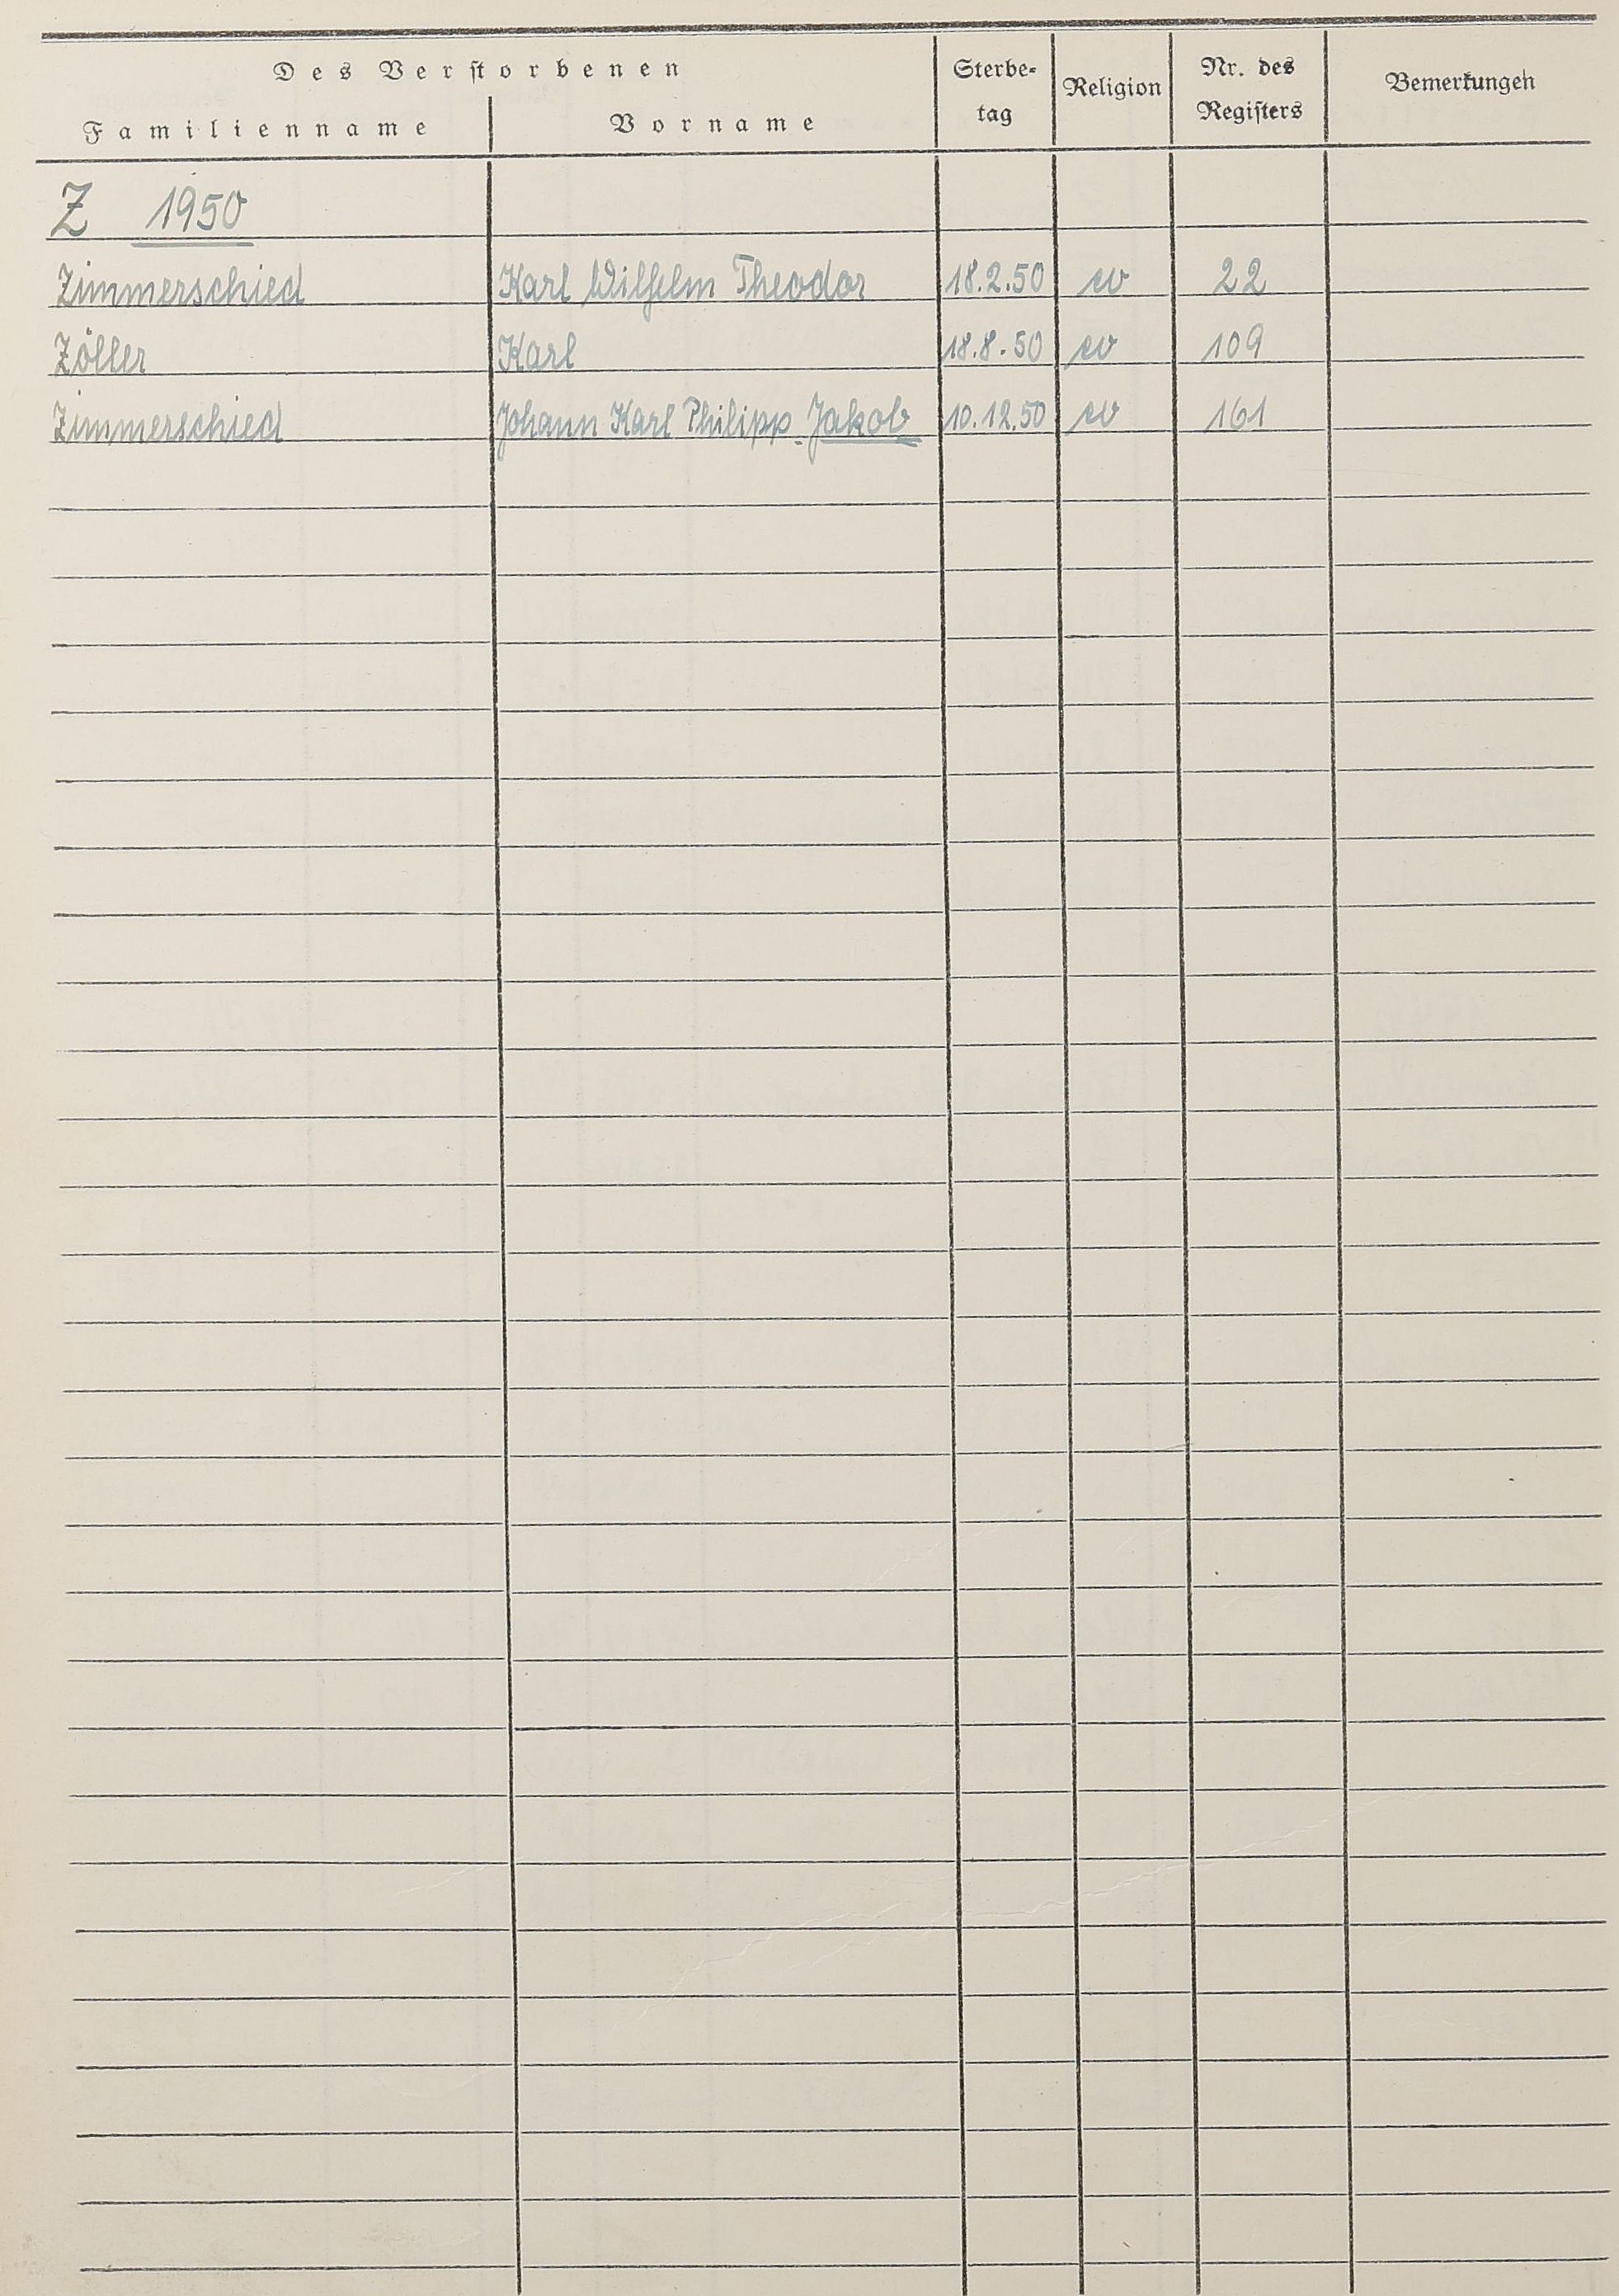 Des Verstorbenen
Familienname Vorname Sterbe-tag Religion Nr. des Registers Bemerkungen
Z 1950
Zimmerschied Karl Wilhelm Theodor 18.2.50 ev 22
Zöller Karl 18.8.50 ev 109
Zimmerschied Johann Karl Philipp Jakob 10.12.50 ev 161